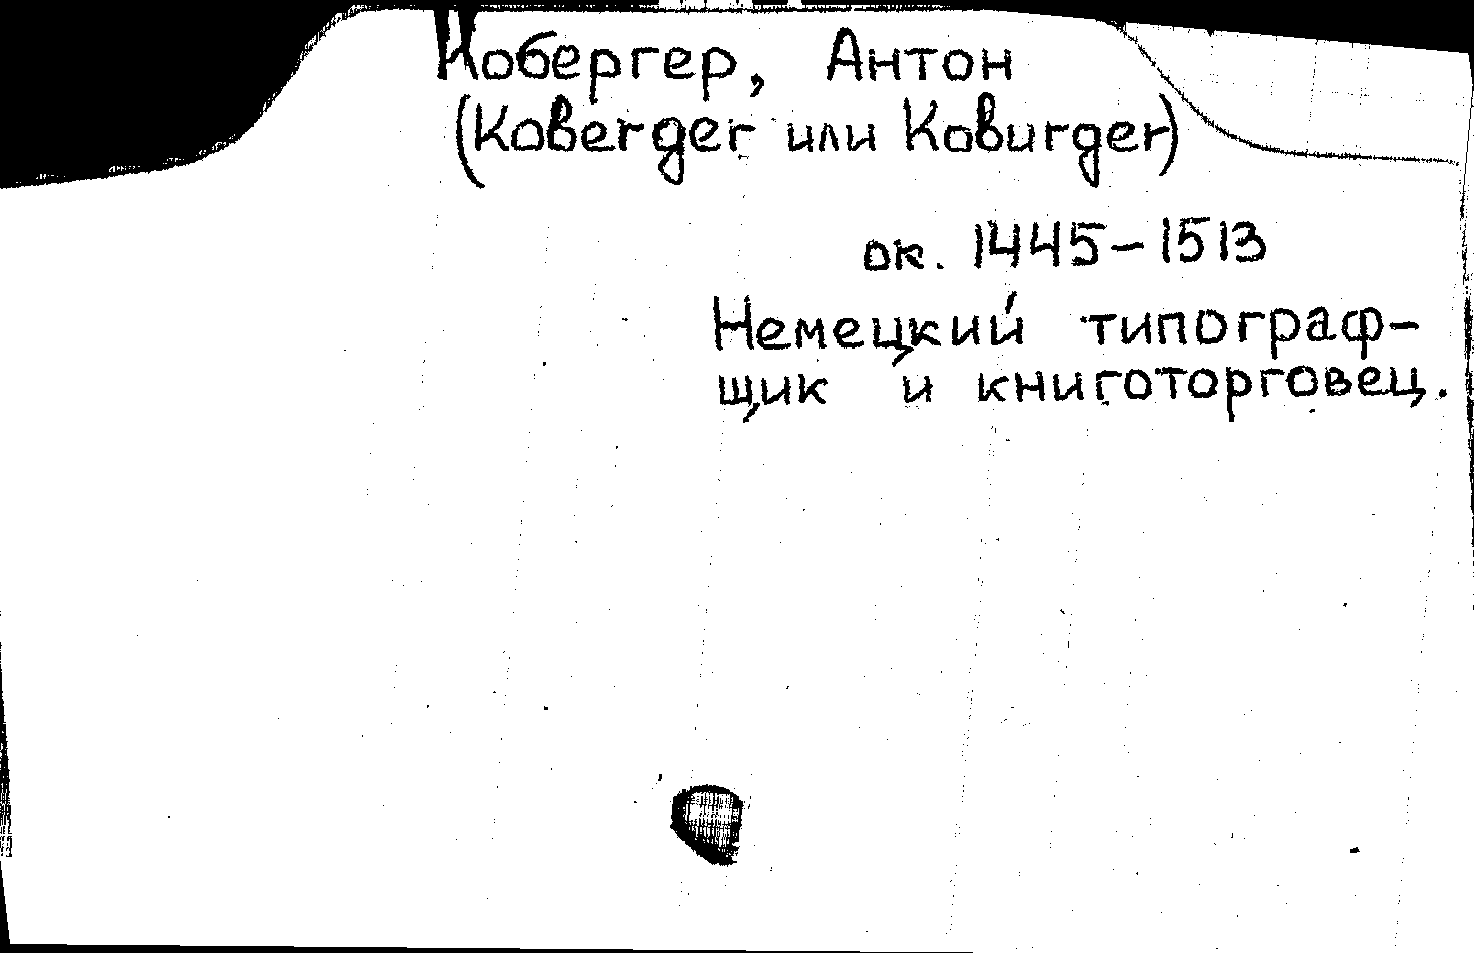 Кобергер, Антон
(Koberger или Koburger)
ок. 1445-1513
Немецкий типограф-
щик и книготорговец.